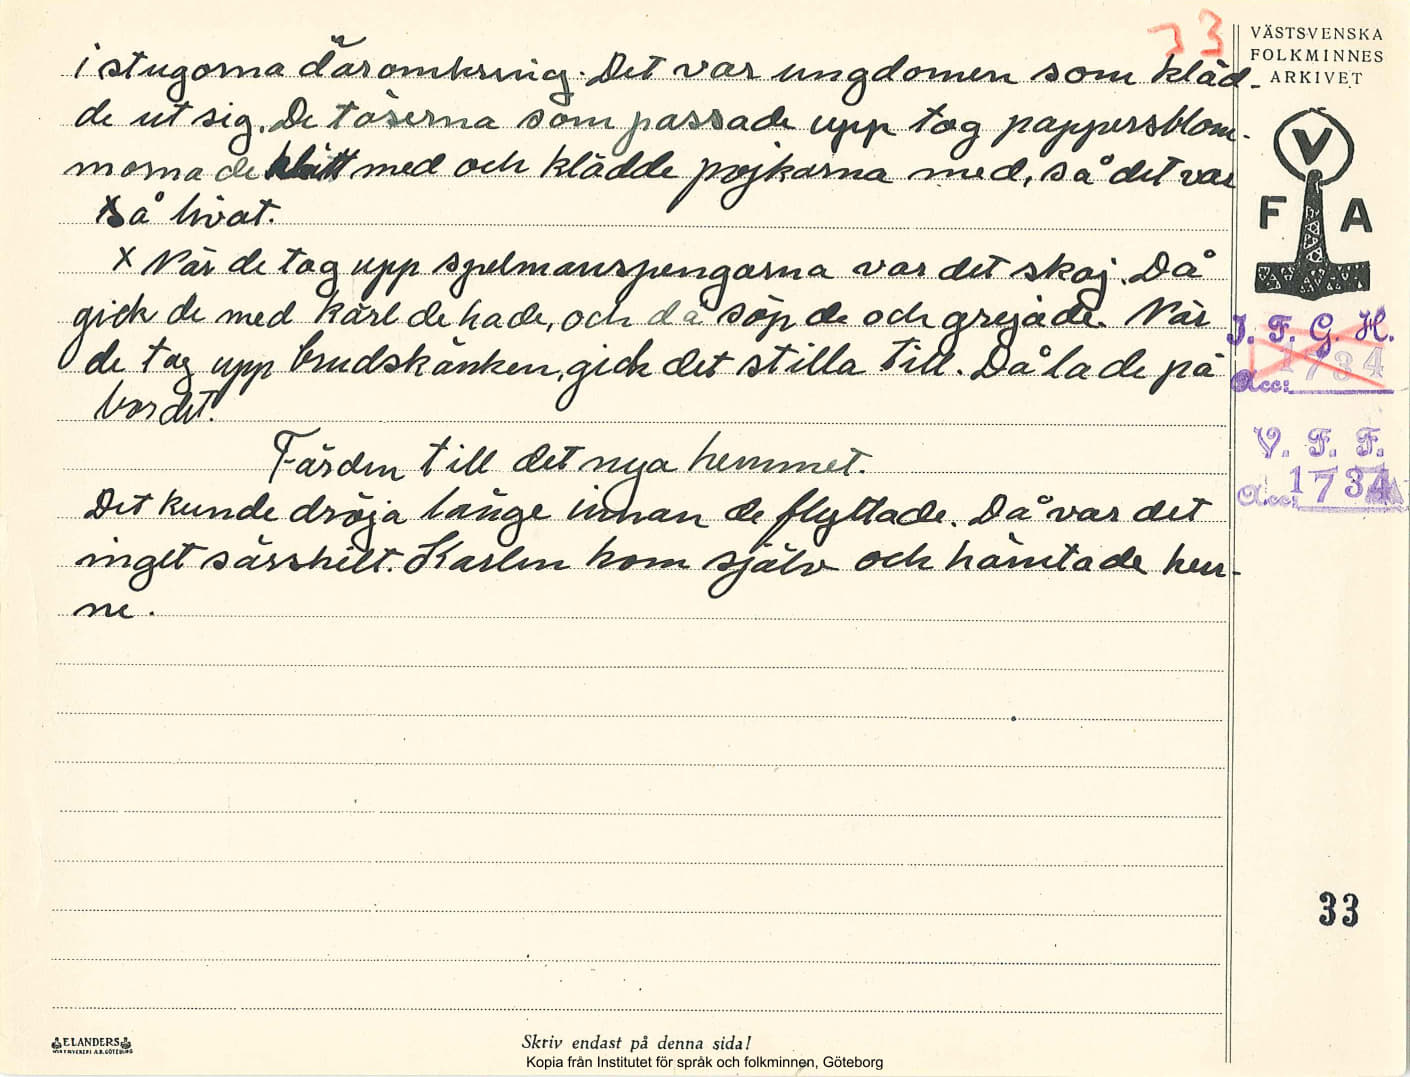 33
VÄSTSVENSKA
FOLKMINNES
ARKIVET
i stugorna däromkring. Det var ungdomen som kläd-
de ut sig. De töserna som passade upp tog pappersblom-
morna de klätt med och klädde pojkarna med, så det var
så livat.
x När de tog upp spelmanspengarna var det skoj. Då
gick de med kärl de hade, och då söp de och grejade. När
de tog upp brudskänken, gick det stilla till. Då la de på
bordet.
Färden till det nya hemmet.
Det kunde dröja länge innan de flyttade. Då var det
inget särskilt. Karlen kom själv och hämtade hen-
ne.
V
F A
I. F. G. H.
Acc: 1734
V. F. F.
Acc: 1734
33
ELANDERS
Skriv endast på denna sida!
Kopia från Institutet för språk och folkminnen, Göteborg